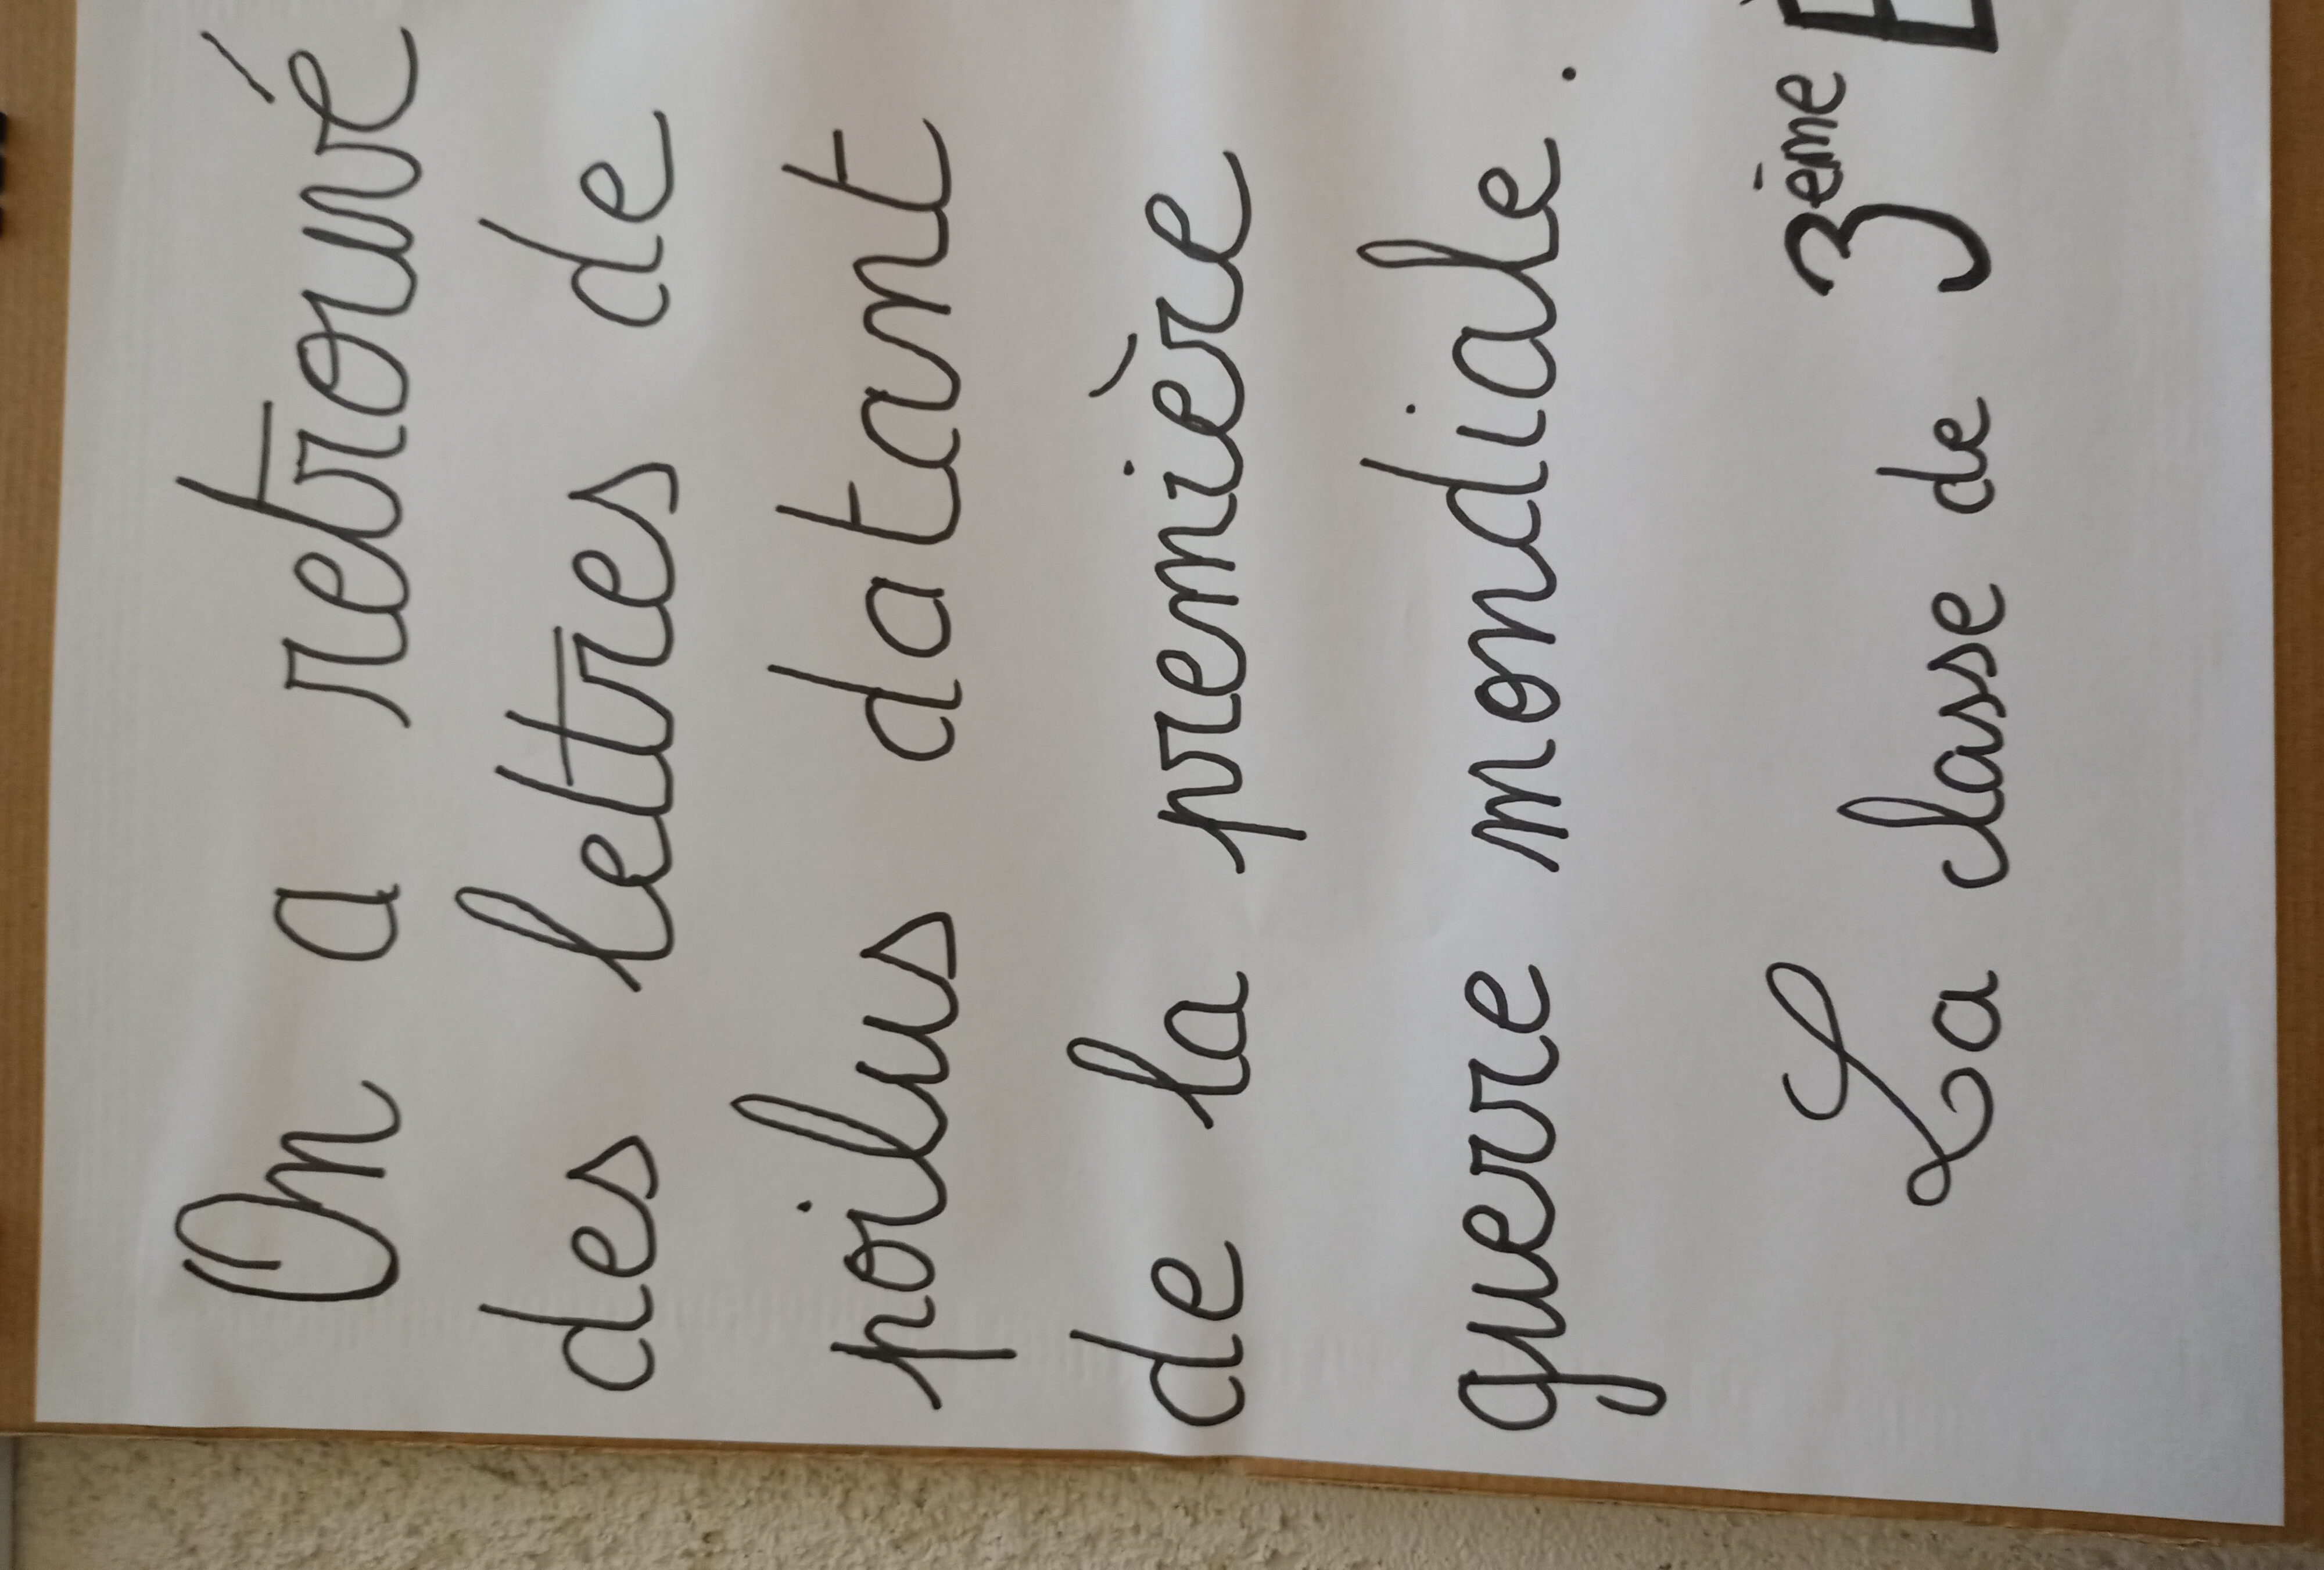 On a retrouvé
des lettres de
poilus datant
de la première
guerre mondiale.
La classe de 3ème